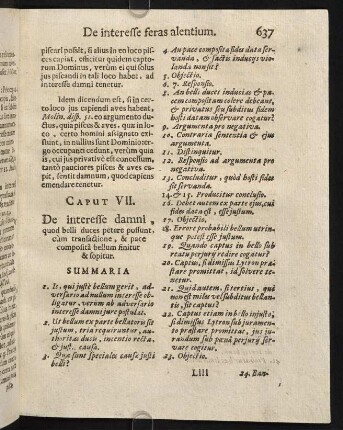 De interesse feras alentium. 637
piscari possit, si alius in eo loco pis-
ces cupiat, efficitur quidem capto-
rum Dominus, verùm ei qui solus
jus piscandi in tali loco habet, ad
interesse damni tenetur.
Idem dicendum est, si in cer-
to loco jus capiendi aves habeat,
Molin. disp. 51. eo argumento du-
ctus, quia pisces & aves, quæ in lo-
co, certo homini assignato exi-
stunt, in nullius sunt Dominio ser-
go occupanti cedunt, verùm quia
is, cui jus privativè est concessum,
tantò pauciores pisces & aves cu-
pit, sentit damnum, quod capiens
emendare tenetur.
CAPUT VII.
De interesse damni,
quod belli duces petere possunt,
cùm transactione, & pace
compositâ bellum finitur
& sopitur.
SUMMARIA
1. Is, qui justè bellum gerit, ad-
versario ad nullum interesse ob-
ligatur, verùm ab adversario
interesse damni jure postulat.
2. Ut bellum ex parte bellatoris sit
justum, tria requiruntur, au-
thoritas ducis, intentio recta,
& just. causa.
3. Quæ sunt speciales causæ justi
belli?
4. An pace compositâ fides data ser-
vanda, & factis induciis vio-
landa non sit?
5. Objectio.
6. 7. Responsio.
8. An belli duces inducias & pa-
cem compositam colere debeant,
& privatus subditus fidem
hosti datam observare cogatur?
9. Argumenta pro negativa.
10. Contraria sententia & ejus
argumenta.
11. Distinguitur.
12. Responsio ad argumenta pro
negativa.
13. Concluditur, quòd hosti fides
sit servanda.
14. & 15. Producitur conclusio.
16. Debet autem ex parte ejus, cui
fides data est, esse justum.
17. Objectio.
18. Errore probabili bellum utrin-
que potest esse justum.
19. Quando captus in bello sub
reatu perjurii redire cogatur?
20. Captus, si dimissus Lytron præ-
stare promittat, id solvere te-
netur.
21. Quid autem, si tertius, qui
non est miles vel subditus bellan-
tis, sit captus?
22. Captus etiam in bello injusto,
si dimissus Lytron sub juramen-
to præstare promittat, jus ju-
randum sub pœna perjurii ser-
vare cogitur.
23. Objectio.
LIII 24. Ban-